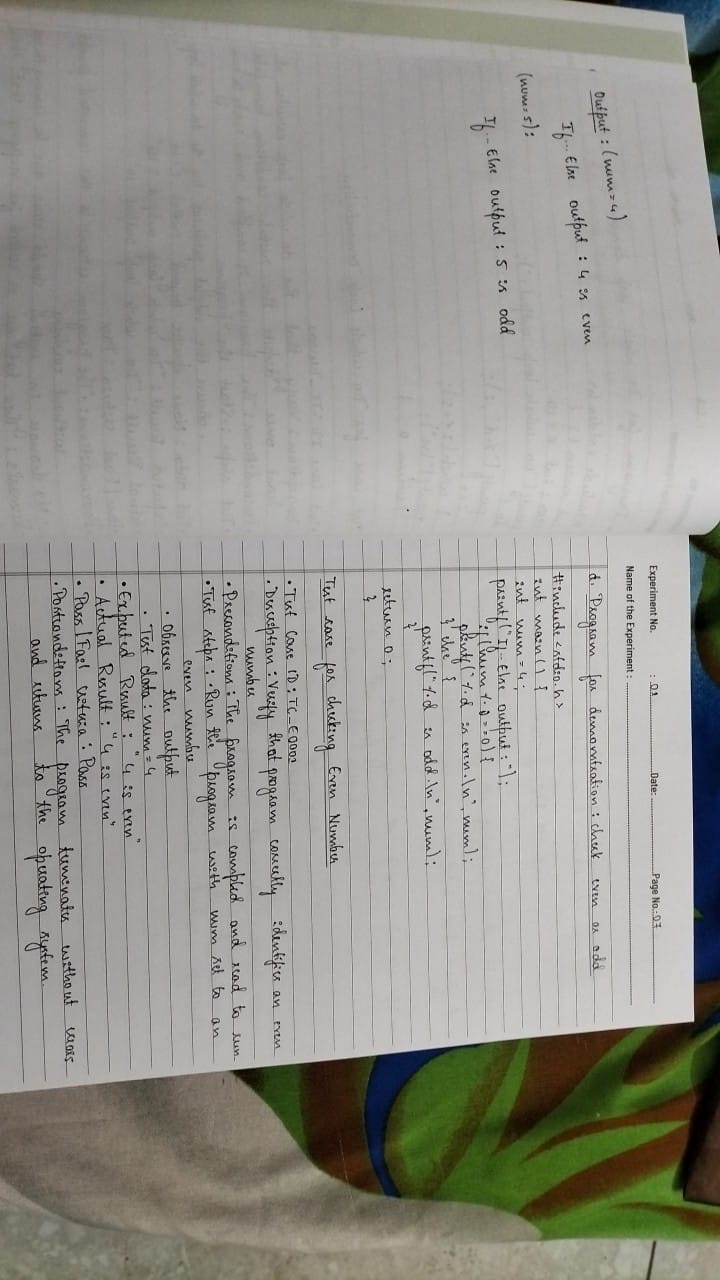 Output : (num = 4)
If... Else output : 4 is even
(num = 5) :
If... Else output : 5 is odd
Experiment No. : 01 Date: Page No.: 07
Name of the Experiment :
d. Program for demonstration : check even or odd
#include <stdio.h>
int main () {
int num = 4 ;
printf ("If-Else output : ") ;
if (num % 2 == 0) {
printf ("%d is even.\n", num) ;
} else {
printf ("%d is odd.\n", num) ;
}
return 0 ;
}
Test case for checking Even Number
• Test Case ID : TC_E0001
• Description : Verify that program correctly identifies an even
number
• Preconditions : The program is compiled and read to run
• Test steps : • Run the program with num set to an
even number
• Observe the output
• Test data : num = 4
• Expected Result : "4 is even"
• Actual Result : "4 is even"
• Pass / Fail criteria : Pass
• Postconditions : The program terminates without errors
and returns to the operating system.